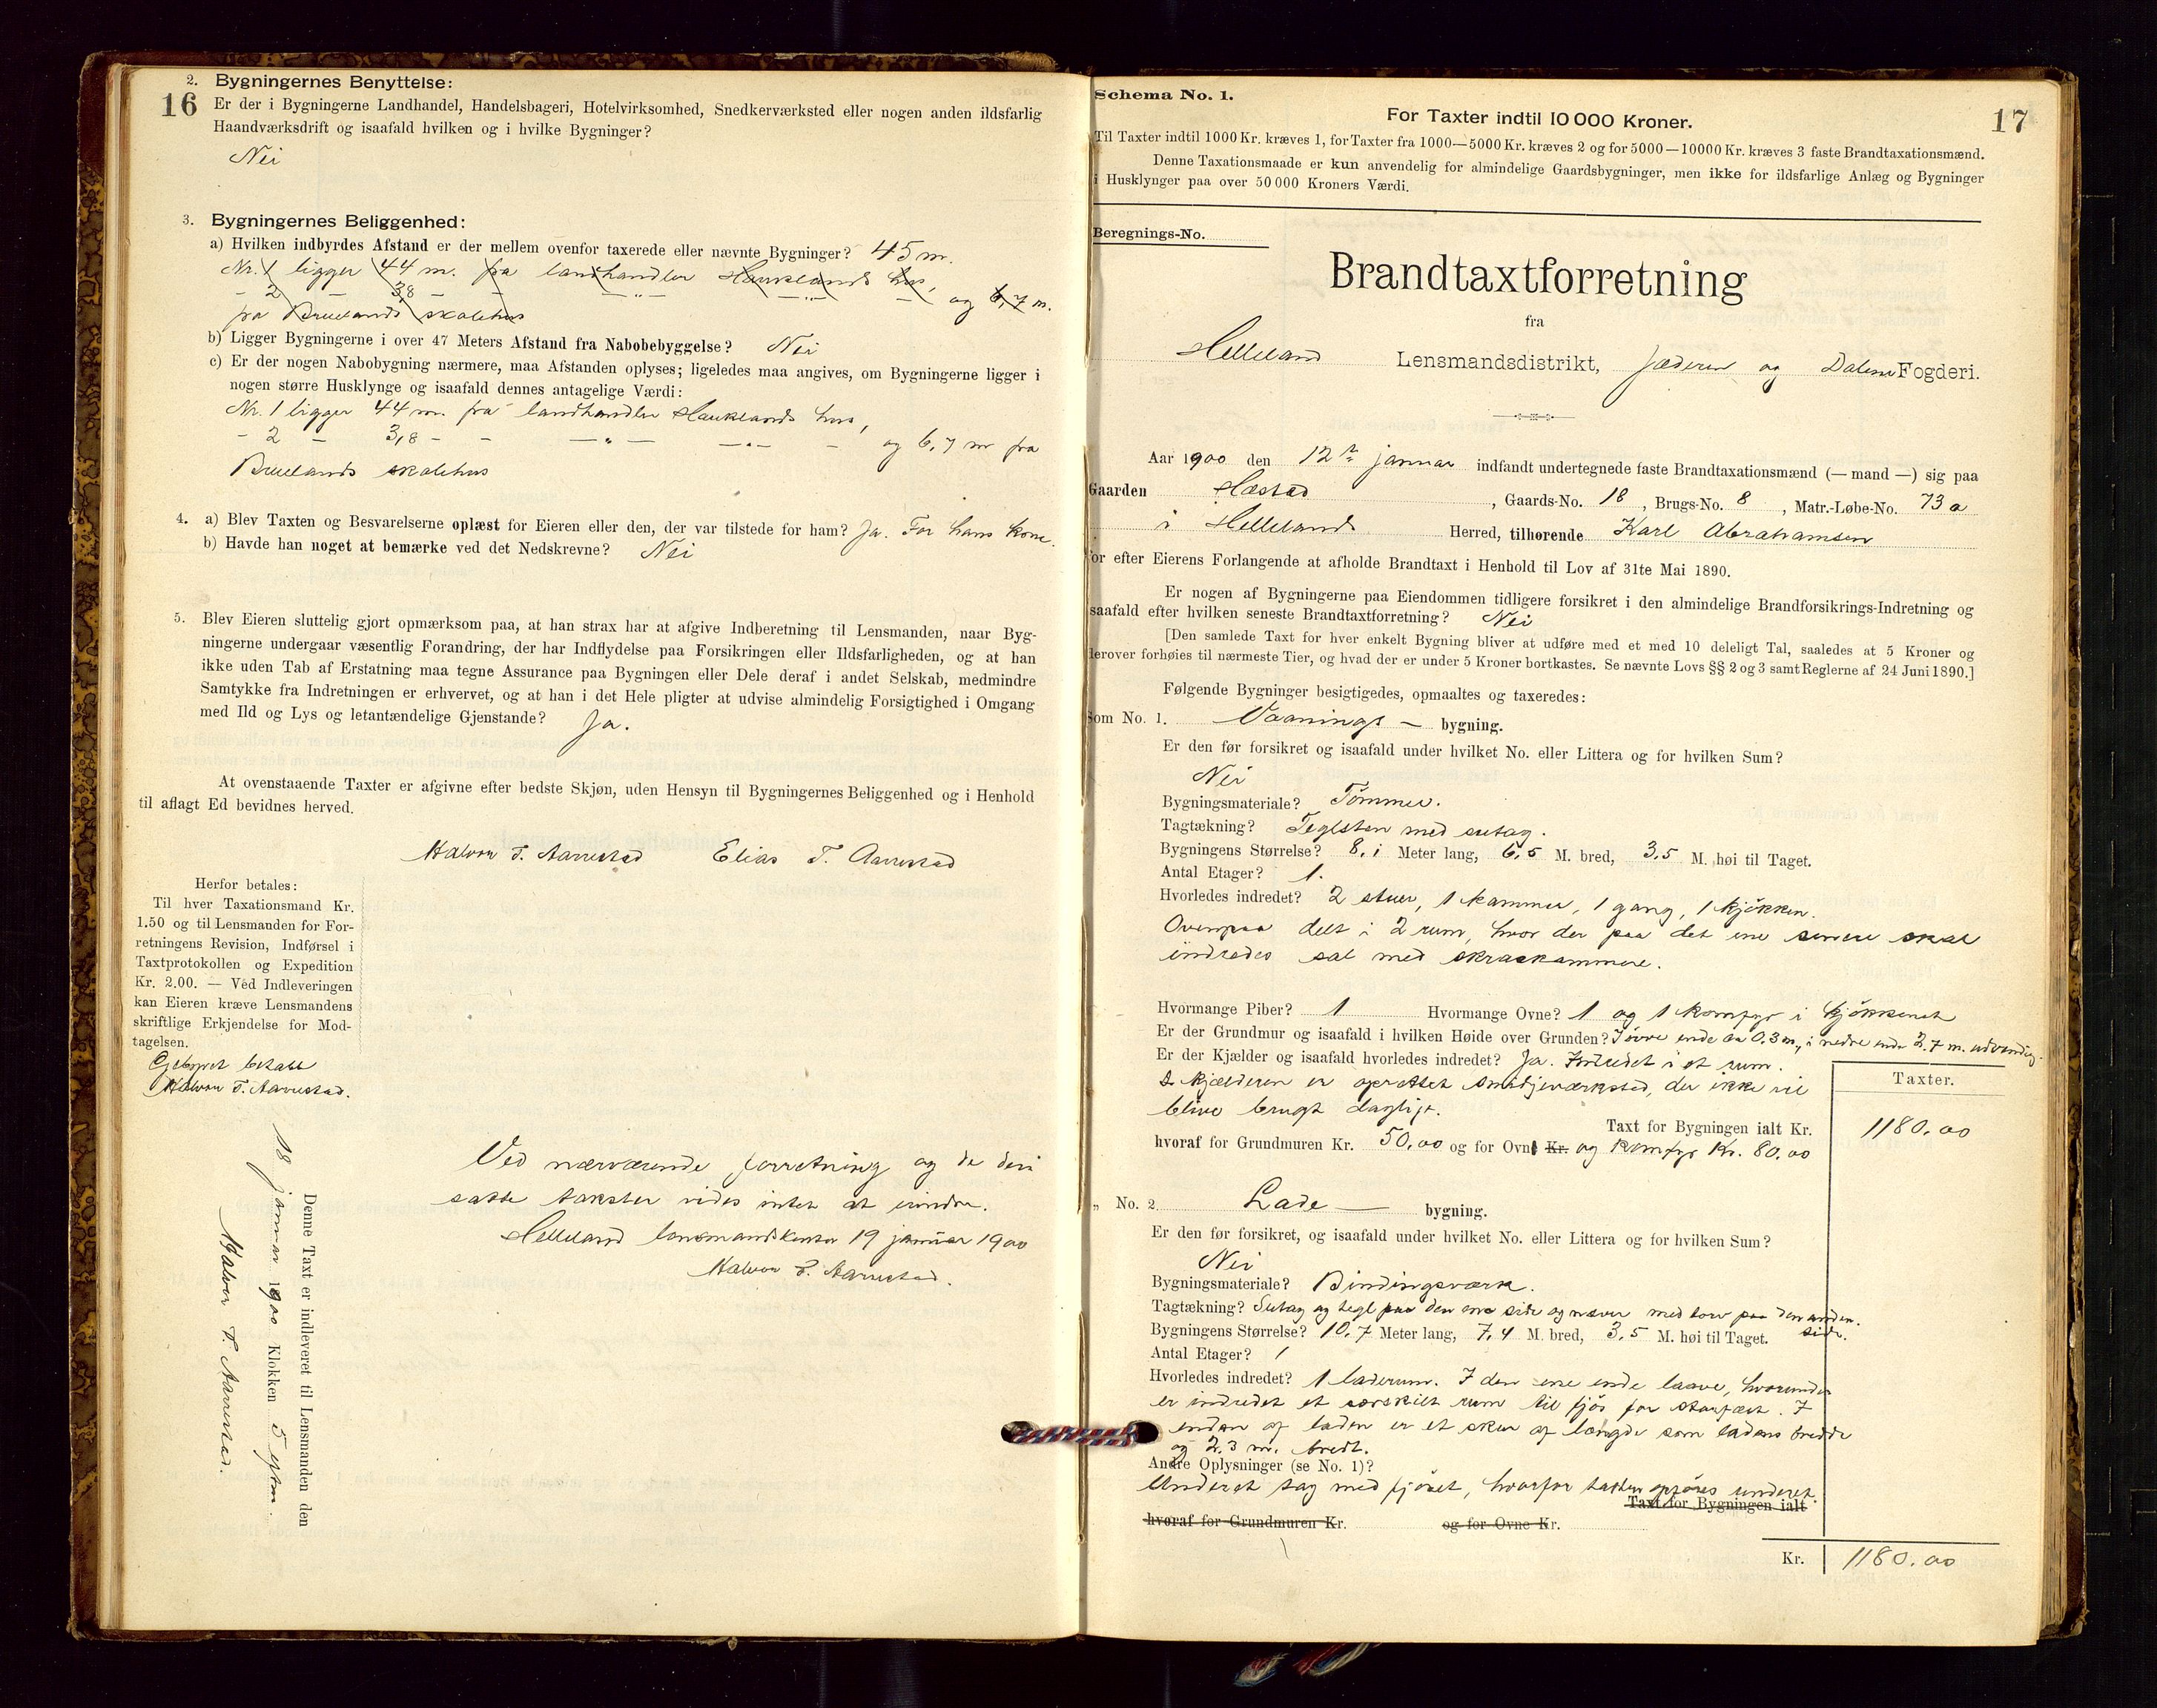 2. Bygningernes Benyttelse:
16 Er der i Bygningerne Landhandel, Handelsbageri, Hotelvirksomhed, Snedkerværksted eller nogen anden ildsfarlig
Haandværksdrift og isaafald hvilken og i hvilke Bygninger?
Nei
3. Bygningernes Beliggenhed:
a) Hvilken indbyrdes Afstand er der mellem ovenfor taxerede eller nævnte Bygninger? 45 m.
Nr. 1 ligger 44 m. fra landhandler Hauklands hus,
- 2 - 3,8 - - — " — — " — - og 6,7 m.
fra Bruelands skolehus
b) Ligger Bygningerne i over 47 Meters Afstand fra Nabobebyggelse? Nei
c) Er der nogen Nabobygning nærmere, maa Afstanden oplyses; ligeledes maa angives, om Bygningerne ligger i
nogen større Husklynge og isaafald dennes antagelige Værdi:
Nr. 1 ligger 44 m. fra landhandler Hauklands hus,
- 2 - 3,8 - - — " — — " — - og 6,7 m fra
Bruelands skolehus
4. a) Blev Taxten og Besvarelserne oplæst for Eieren eller den, der var tilstede for ham? Ja. For hans kone.
b) Havde han noget at bemærke ved det Nedskrevne? Nei
5. Blev Eieren sluttelig gjort opmærksom paa, at han strax har at afgive Indberetning til Lensmanden, naar Byg-
ningerne undergaar væsentlig Forandring, der har Indflydelse paa Forsikringen eller Ildsfarligheden, og at han
ikke uden Tab af Erstatning maa tegne Assurance paa Bygningen eller Dele deraf i andet Selskab, medmindre
Samtykke fra Indretningen er erhvervet, og at han i det Hele pligter at udvise almindelig Forsigtighed i Omgang
med Ild og Lys og letantændelige Gjenstande? Ja.
At ovenstaaende Taxter er afgivne efter bedste Skjøn, uden Hensyn til Bygningernes Beliggenhed og i Henhold
til aflagt Ed bevidnes herved.
Halvor T. Aarrestad Elias T. Aarrestad
Herfor betales:
Til hver Taxationsmand Kr.
1.50 og til Lensmanden for For-
retningens Revision, Indførsel i
Taxtprotokollen og Expedition
Kr. 2.00. — Ved Indleveringen
kan Eieren kræve Lensmandens
skriftlige Erkjendelse for Mod-
tagelsen.
Gebyret betalt
Halvor T. Aarrestad.
Denne Taxt er indleveret til Lensmanden den
18 januar 1900 Klokken 5 eftm.
Halvor T. Aarrestad.
Ved nærværende forretning og de deri
satte takster vides intet at erindre.
Helleland lensmandskontor 19 januar 1900
Halvor T. Aarrestad.
Schema No. 1.
17
For Taxter indtil 10 000 Kroner.
Til Taxter indtil 1000 Kr. kræves 1, for Taxter fra 1000—5000 Kr. kræves 2 og for 5000—10000 Kr. kræves 3 faste Brandtaxationsmænd.
Denne Taxationsmaade er kun anvendelig for almindelige Gaardsbygninger, men ikke for ildsfarlige Anlæg og Bygninger
i Husklynger paa over 50 000 Kroners Værdi.
Beregnings-No.
Brandtaxtforretning
fra
Helleland Lensmandsdistrikt, Jæderen og Dalene Fogderi.
Aar 1900 den 12te januar indfandt undertegnede faste Brandtaxationsmænd (— mand —) sig paa
Gaarden Hæstad, Gaards-No. 18, Brugs-No. 8, Matr.-Løbe-No. 73 a
i Hellelands Herred, tilhørende Karl Abrahamsen
for efter Eierens Forlangende at afholde Brandtaxt i Henhold til Lov af 31te Mai 1890.
Er nogen af Bygningerne paa Eiendommen tidligere forsikret i den almindelige Brandforsikrings-Indretning og
saafald efter hvilken seneste Brandtaxtforretning? Nei
[Den samlede Taxt for hver enkelt Bygning bliver at udføre med et med 10 deleligt Tal, saaledes at 5 Kroner og
derover forhøies til nærmeste Tier, og hvad der er under 5 Kroner bortkastes. Se nævnte Lovs §§ 2 og 3 samt Reglerne af 24 Juni 1890.]
Følgende Bygninger besigtigedes, opmaaltes og taxeredes:
Som No. 1. Vaanings — bygning.
Er den før forsikret og isaafald under hvilket No. eller Littera og for hvilken Sum?
Nei
Bygningsmateriale? Tømmer.
Tagtækning? Teglsten med sutag.
Bygningens Størrelse? 8,1 Meter lang, 6,5 M. bred, 3,5 M. høi til Taget.
Antal Etager? 1.
Hvorledes indredet? 2 stuer, 1 kammer, 1 gang, 1 kjøkken.
Ovenpaa delt i 2 rum, hvor der paa det ene senere skal
indredes sal med skraakammere.
Hvormange Piber? 1 Hvormange Ovne? 1 og 1 komfyr i kjøkkenet
Er der Grundmur og isaafald i hvilken Høide over Grunden? I øvre ende ca 0.3 m., i nedre ende 2.7 m. udvendig.
Er der Kjælder og isaafald hvorledes indredet? Ja. Indredet i et rum.
I kjælderen er oprettet smidjeværksted, der ikke vil
blive brugt dagligt.
Taxter.
Taxt for Bygningen ialt Kr. 1180,00
hvoraf for Grundmuren Kr. 50,00 og for Ovn Kr. og komfyr Kr. 80,00
„ No. 2. Lade — bygning.
Er den før forsikret, og isaafald under hvilket No. eller Littera og for hvilken Sum?
Nei
Bygningsmateriale? Bindingsværk.
Tagtækning? Sutag og tegl paa den ene side og næver med torv paa den anden
side.
Bygningens Størrelse? 10,7 Meter lang, 7,4 M. bred, 3,5 M. høi til Taget.
Antal Etager? 1
Hvorledes indredet? 1 laderum. I den ene ende laave, hvorunder
er indredet et særskilt rum til fjøs for storfæet. I
enden af laden er et skur af længde som ladens bredde
og 2.3 m. bredt.
Andre Oplysninger (se No. 1)?
Underet tag med fjøset, hvorfor taksten opføres underet.
Taxt for Bygningen ialt
hvoraf for Grundmuren Kr. og for Ovne Kr.
Kr. 1180,00